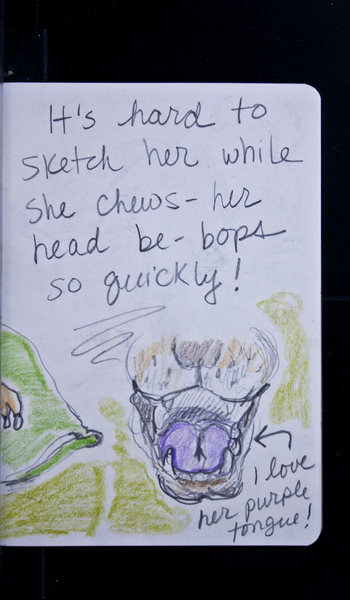 It's hard to
sketch her while
she chews - her
head be-bops
so quickly!
I love
her purple
tongue!